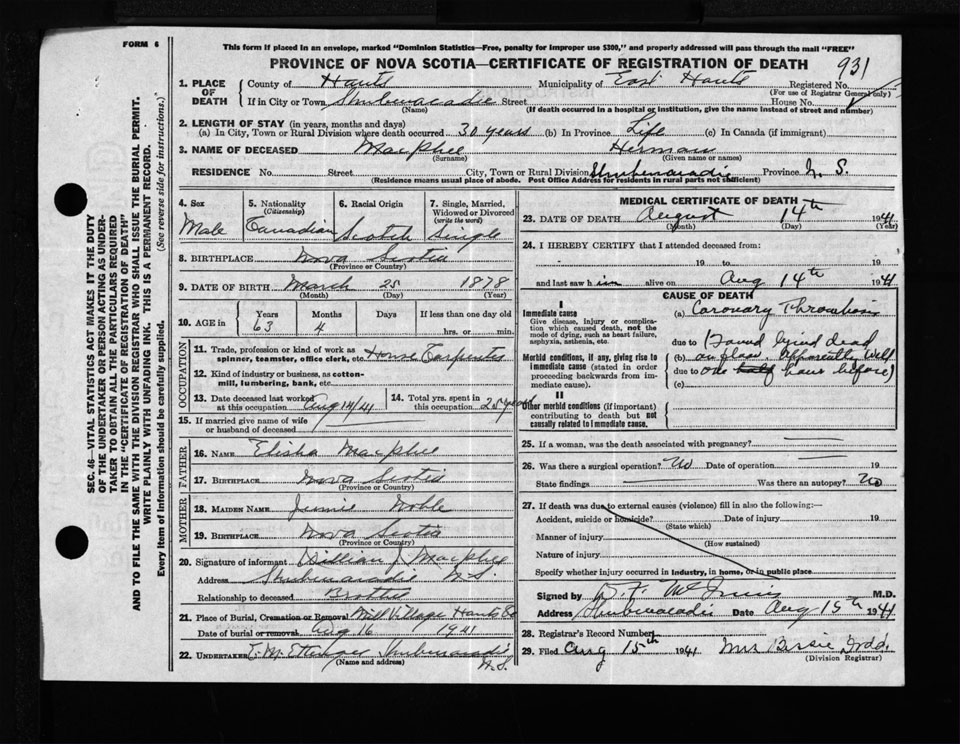 FORM 6
This form if placed in an envelope, marked "Dominion Statistics—Free, penalty for improper use $300," and properly addressed will pass through the mail "FREE"
PROVINCE OF NOVA SCOTIA—CERTIFICATE OF REGISTRATION OF DEATH
931
1. PLACE OF DEATH
County of Hants Municipality of East Hants Registered No.
(For use of Registrar General only)
If in City or Town Shubenacadie Street House No.
(Name) (If death occurred in a hospital or institution, give the name instead of street and number)
2. LENGTH OF STAY (in years, months and days)
(a) In City, Town or Rural Division where death occurred 30 years (b) In Province Life (c) In Canada (if immigrant)
3. NAME OF DECEASED Macphee Herman
(Surname) (Given name or names)
RESIDENCE No. Street City, Town or Rural Division Shubenacadie Province N. S.
(Residence means usual place of abode. Post Office Address for residents in rural parts not sufficient)
4. Sex
Male
5. Nationality
(Citizenship)
Canadian
6. Racial Origin
Scotch
7. Single, Married, Widowed or Divorced
(write the word)
Single
8. BIRTHPLACE Nova Scotia
(Province or Country)
9. DATE OF BIRTH March 25 1878
(Month) (Day) (Year)
10. AGE in Years Months Days If less than one day old
63 4 hrs. or min.
OCCUPATION
11. Trade, profession or kind of work as spinner, teamster, office clerk, etc. House Carpenter
12. Kind of industry or business, as cotton-mill, lumbering, bank, etc.
13. Date deceased last worked at this occupation Aug 14/41
14. Total yrs. spent in this occupation 25 years
15. If married give name of wife or husband of deceased
FATHER
16. NAME Elisha Macphee
17. BIRTHPLACE Nova Scotia
(Province or Country)
MOTHER
18. MAIDEN NAME Jennie Noble
19. BIRTHPLACE Nova Scotia
(Province or Country)
20. Signature of informant William J. Macphee
Address Shubenacadie N.S.
Relationship to deceased Brother
21. Place of Burial, Cremation or Removal Mill Village Hants Co
Date of burial or removal Aug 16 1941
22. UNDERTAKER Shubenacadie
(Name and address) N.S.
MEDICAL CERTIFICATE OF DEATH
23. DATE OF DEATH August 14th 1941
(Month) (Day) (Year)
24. I HEREBY CERTIFY that I attended deceased from:
19 to 19
and last saw him alive on Aug 14th 1941
CAUSE OF DEATH
I
Immediate cause
Give disease, injury or complication which caused death, not the mode of dying, such as heart failure, asphyxia, asthenia, etc.
Morbid conditions, if any, giving rise to immediate cause (stated in order proceeding backwards from immediate cause).
II
Other morbid conditions (if important) contributing to death but not causally related to immediate cause.
(a) Coronary Thrombosis
due to (Found lying dead
(b) on floor. Apparently well
due to one half hour before)
(c)
25. If a woman, was the death associated with pregnancy?
26. Was there a surgical operation? No Date of operation 19
State findings Was there an autopsy? No
27. If death was due to external causes (violence) fill in also the following:—
Accident, suicide or homicide? Date of injury 19
(State which)
Manner of injury
(How sustained)
Nature of injury
Specify whether injury occurred in industry, in home, or in public place
Signed by D. F. McInnis M.D.
Address Shubenacadie Date Aug 15th 1941
28. Registrar's Record Number
29. Filed Aug 15th 1941 Mrs Bessie Dodd.
(Division Registrar)
SEC. 46—VITAL STATISTICS ACT MAKES IT THE DUTY
OF THE UNDERTAKER OR PERSON ACTING AS UNDER-
TAKER TO OBTAIN ALL THE PARTICULARS REQUIRED
IN THE "CERTIFICATE OF REGISTRATION OF DEATH"
AND TO FILE THE SAME WITH THE DIVISION REGISTRAR WHO SHALL ISSUE THE BURIAL PERMIT.
WRITE PLAINLY WITH UNFADING INK. THIS IS A PERMANENT RECORD.
Every item of Information should be carefully supplied. (See reverse side for instructions.)